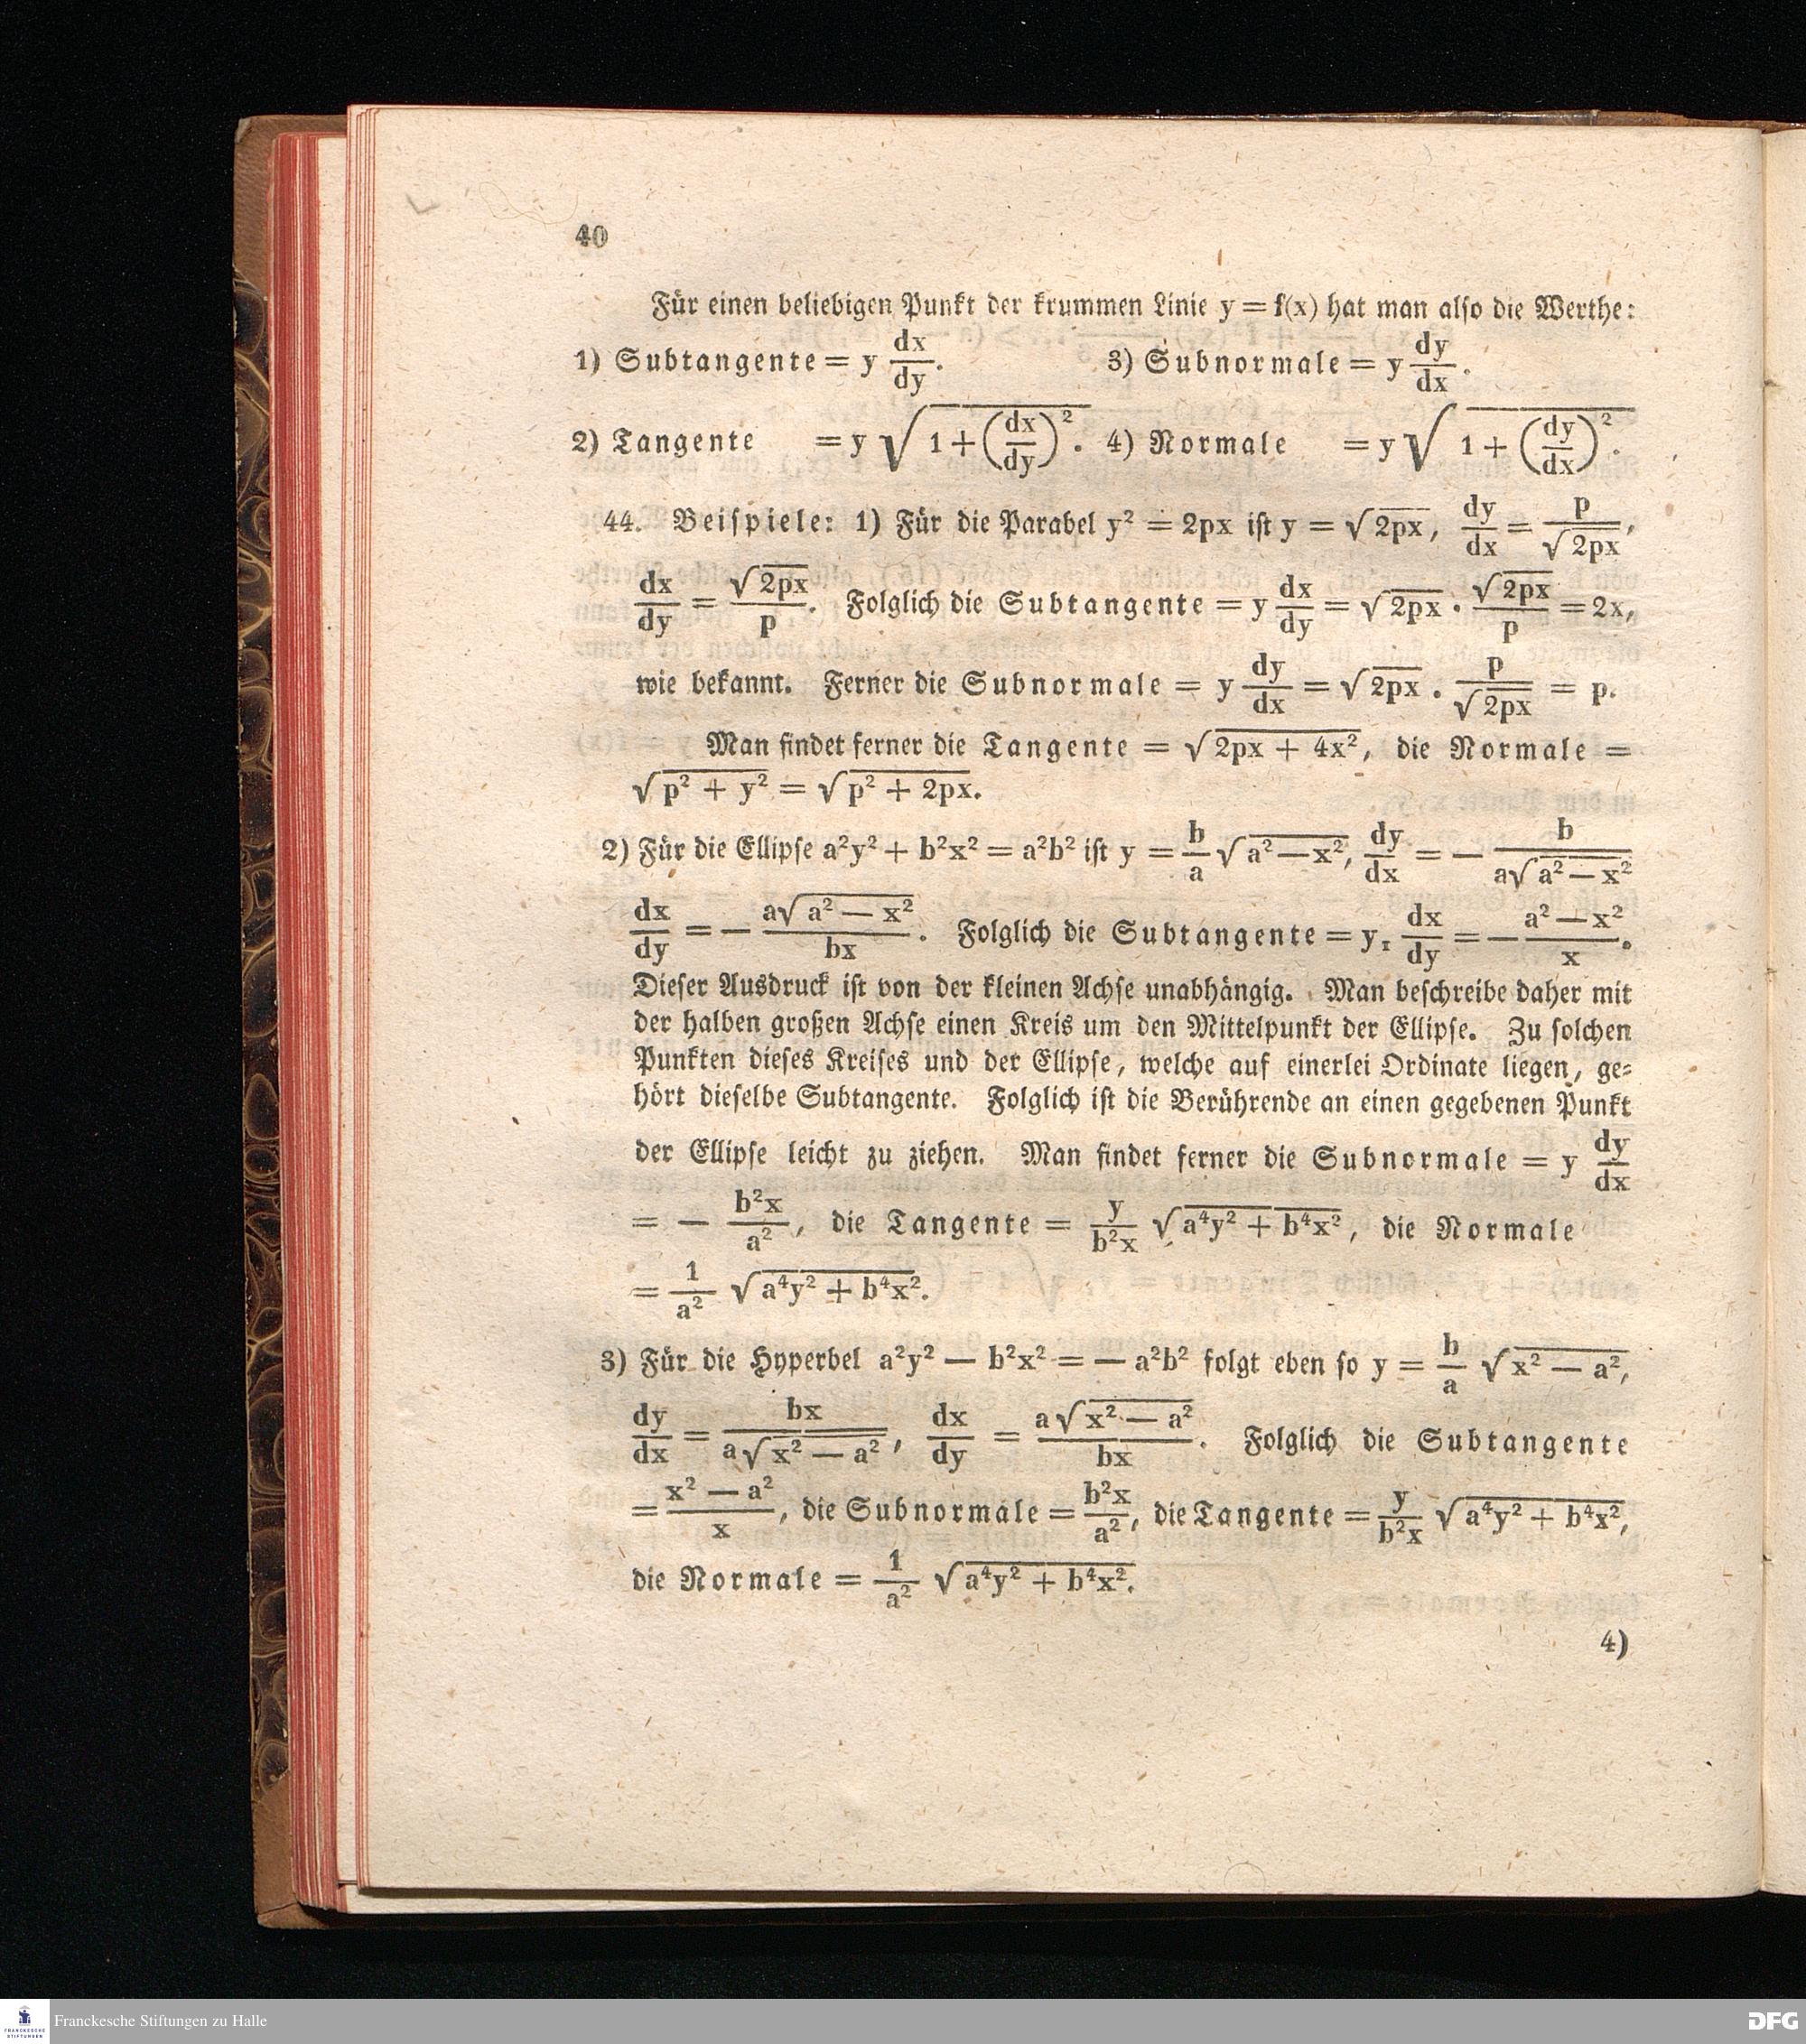 40
Für einen beliebigen Punkt der krummen Linie y = f(x) hat man also die Werthe:
1) Subtangente = y dx/dy. 3) Subnormale = y dy/dx.
2) Tangente = y √(1 + (dx/dy)²). 4) Normale = y √(1 + (dy/dx)²).
44. Beispiele: 1) Für die Parabel y² = 2px ist y = √2px, dy/dx = p/√2px,
dx/dy = √2px/p. Folglich die Subtangente = y dx/dy = √2px · √2px/p = 2x,
wie bekannt. Ferner die Subnormale = y dy/dx = √2px · p/√2px = p.
Man findet ferner die Tangente = √(2px + 4x²), die Normale =
√(p² + y²) = √(p² + 2px).
2) Für die Ellipse a²y² + b²x² = a²b² ist y = b/a √(a² — x²), dy/dx = — b/a√(a² — x²)
dx/dy = — a√(a² — x²)/bx. Folglich die Subtangente = y. dx/dy = — (a² — x²)/x.
Dieser Ausdruck ist von der kleinen Achse unabhängig. Man beschreibe daher mit
der halben großen Achse einen Kreis um den Mittelpunkt der Ellipse. Zu solchen
Punkten dieses Kreises und der Ellipse, welche auf einerlei Ordinate liegen, ge-
hört dieselbe Subtangente. Folglich ist die Berührende an einen gegebenen Punkt
der Ellipse leicht zu ziehen. Man findet ferner die Subnormale = y dy/dx
= — b²x/a², die Tangente = y/b²x √(a⁴y² + b⁴x²), die Normale
= 1/a² √(a⁴y² + b⁴x²).
3) Für die Hyperbel a²y² — b²x² = — a²b² folgt eben so y = b/a √(x² — a²),
dy/dx = bx/a√(x² — a²), dx/dy = a√(x² — a²)/bx. Folglich die Subtangente
= (x² — a²)/x, die Subnormale = b²x/a², die Tangente = y/b²x √(a⁴y² + b⁴x²),
die Normale = 1/a² √(a⁴y² + b⁴x²).
4)
FRANCKESCHE
STIFTUNGEN
Franckesche Stiftungen zu Halle
DFG